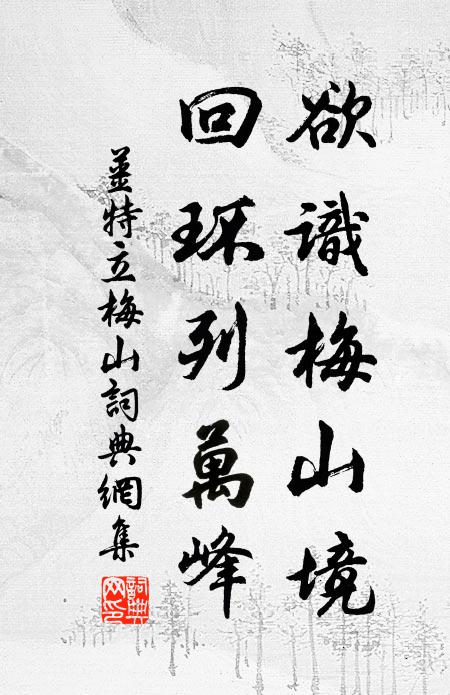 欲識梅山境
回环列萬峰
姜特立梅山詞典網集
詞典網印